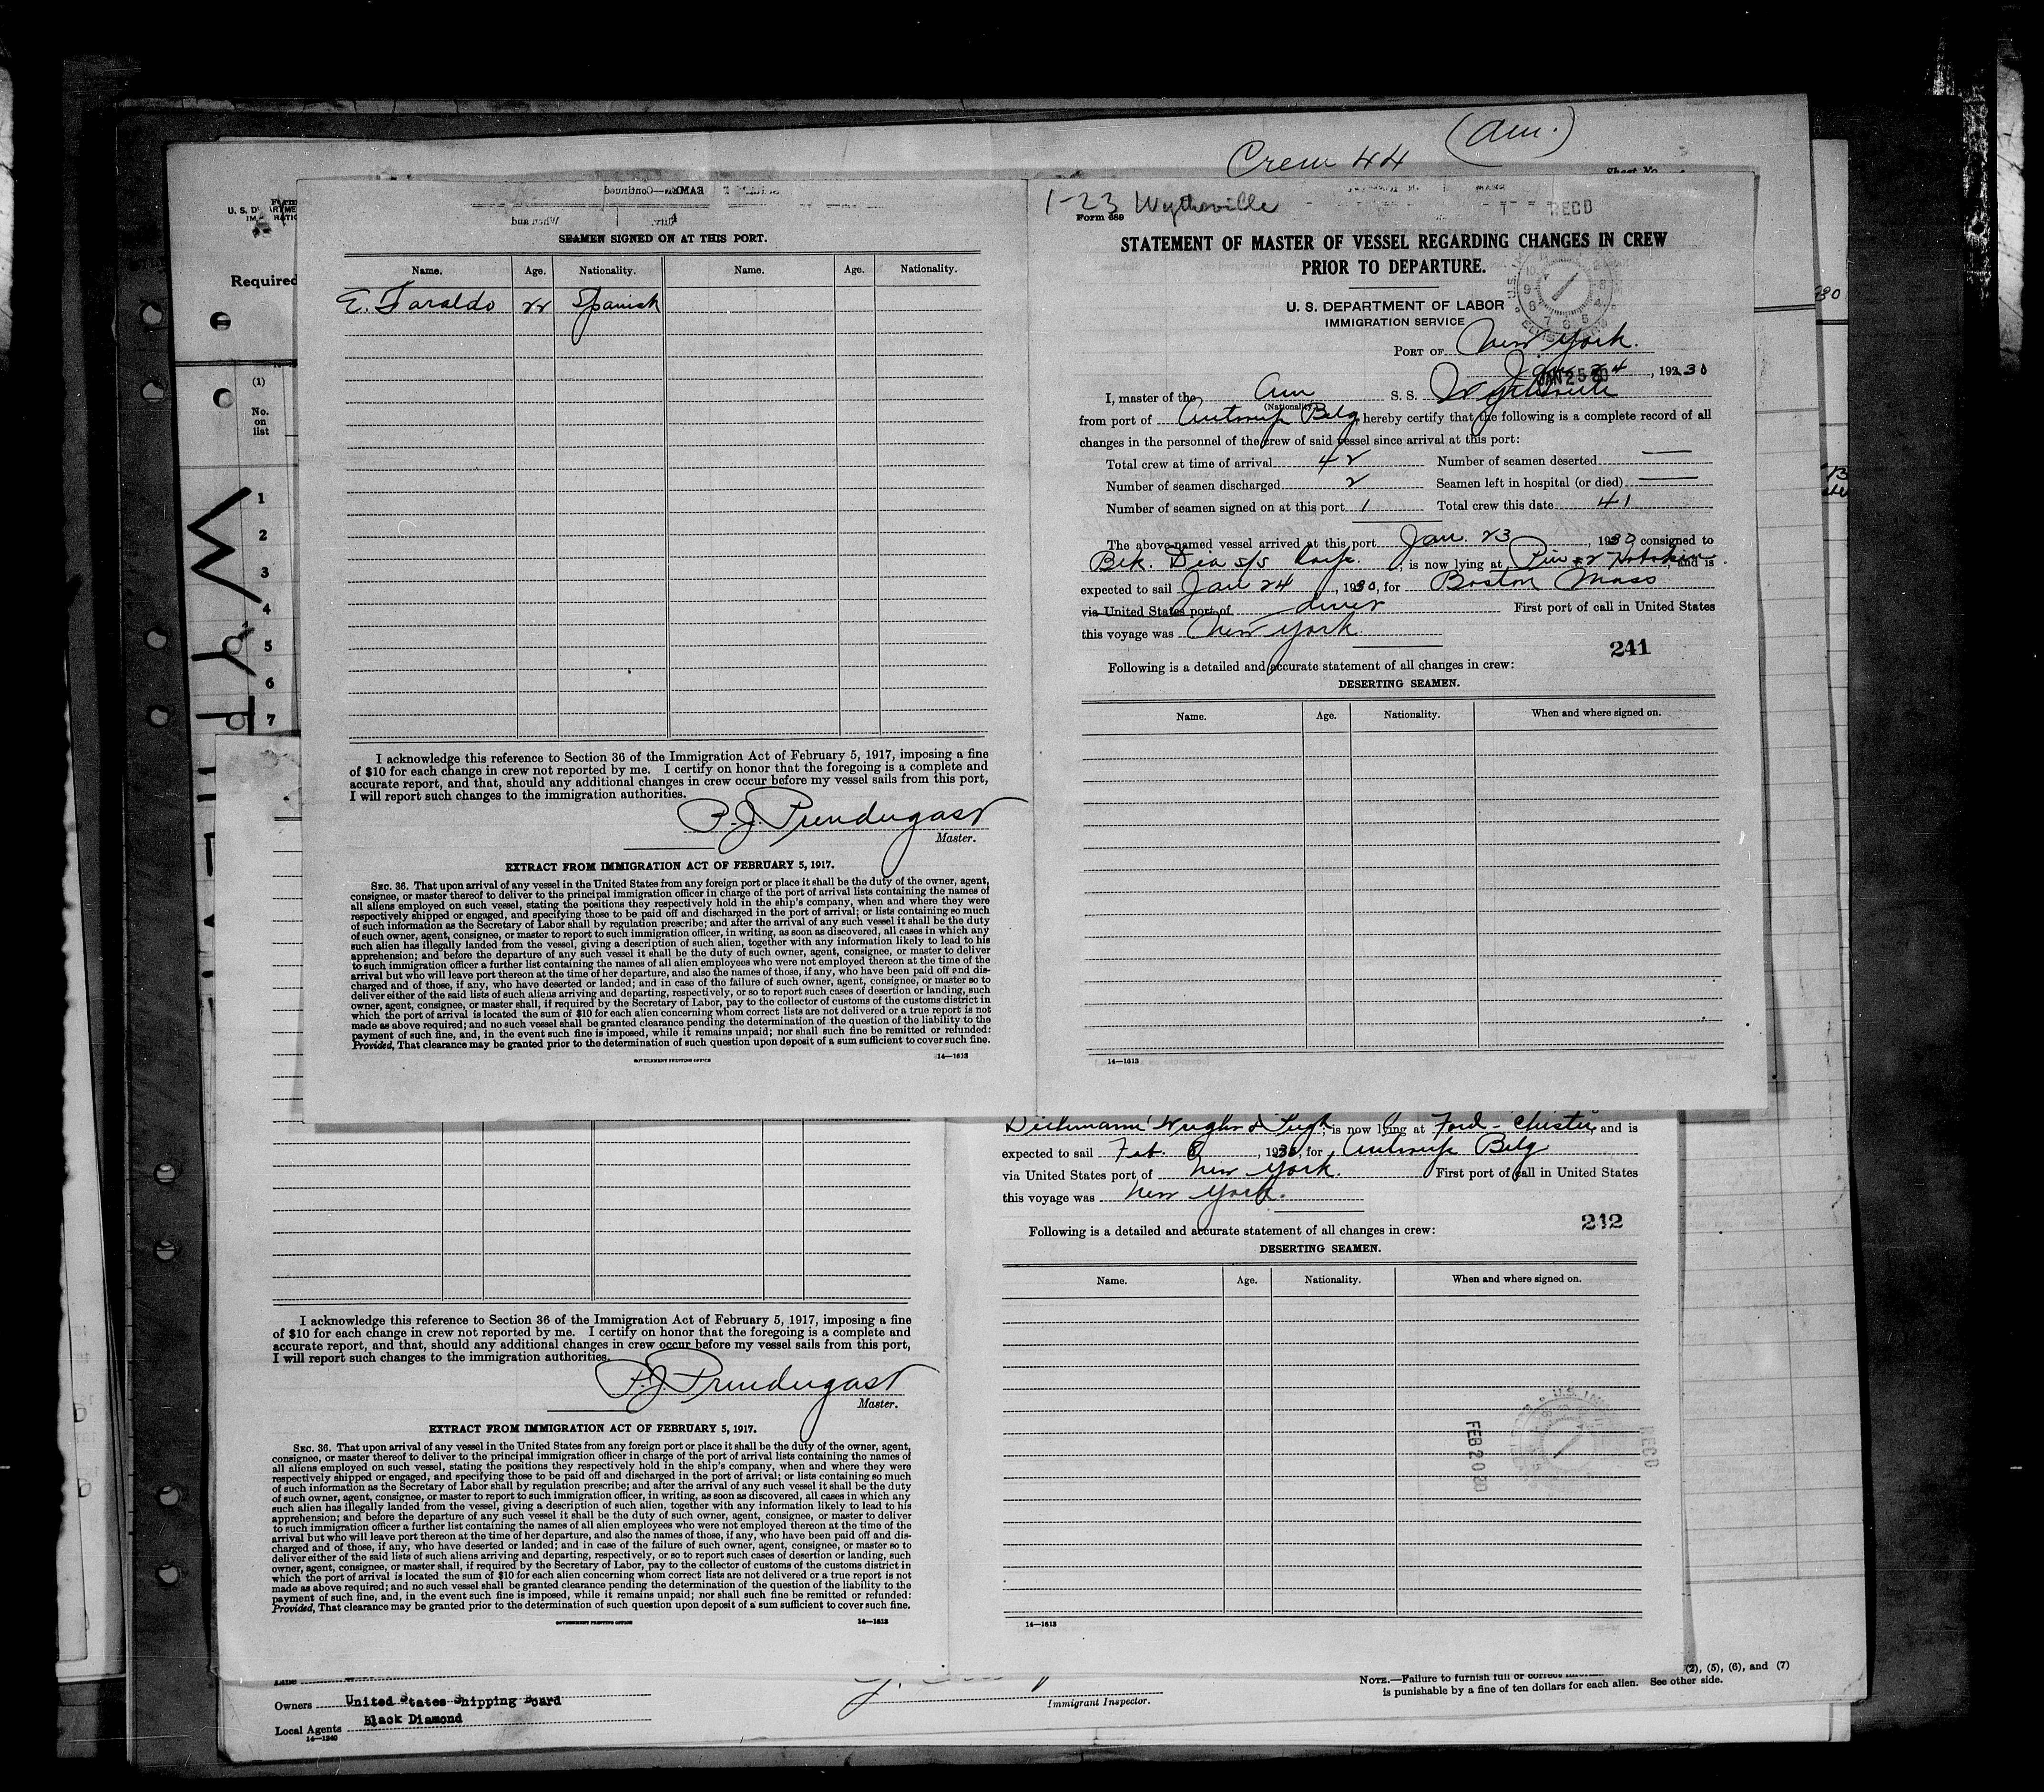 Crew 44 (Am.)
Sheet No.
Form
U. S. D
Required
(1)
No.
on
list
1
2
3
4
5
6
7
W
Y
T
SEAMEN SIGNED ON AT THIS PORT.
Name. Age. Nationality. Name. Age. Nationality.
E. Faraldo 22 Spanish
I acknowledge this reference to Section 36 of the Immigration Act of February 5, 1917, imposing a fine
of $10 for each change in crew not reported by me. I certify on honor that the foregoing is a complete and
accurate report, and that, should any additional changes in crew occur before my vessel sails from this port,
I will report such changes to the immigration authorities.
P. J. Prendergast
Master.
EXTRACT FROM IMMIGRATION ACT OF FEBRUARY 5, 1917.
SEC. 36. That upon arrival of any vessel in the United States from any foreign port or place it shall be the duty of the owner, agent,
consignee, or master thereof to deliver to the principal immigration officer in charge of the port of arrival lists containing the names of
all aliens employed on such vessel, stating the positions they respectively hold in the ship's company, when and where they were
respectively shipped or engaged, and specifying those to be paid off and discharged in the port of arrival; or lists containing so much
of such information as the Secretary of Labor shall by regulation prescribe; and after the arrival of any such vessel it shall be the duty
of such owner, agent, consignee, or master to report to such immigration officer, in writing, as soon as discovered, all cases in which any
such alien has illegally landed from the vessel, giving a description of such alien, together with any information likely to lead to his
apprehension; and before the departure of any such vessel it shall be the duty of such owner, agent, consignee, or master to deliver
to such immigration officer a further list containing the names of all alien employees who were not employed thereon at the time of the
arrival but who will leave port thereon at the time of her departure, and also the names of those, if any, who have been paid off and dis-
charged and of those, if any, who have deserted or landed; and in case of the failure of such owner, agent, consignee, or master so to
deliver either of the said lists of such aliens arriving and departing, respectively, or so to report such cases of desertion or landing, such
owner, agent, consignee, or master shall, if required by the Secretary of Labor, pay to the collector of customs of the customs district in
which the port of arrival is located the sum of $10 for each alien concerning whom correct lists are not delivered or a true report is not
made as above required; and no such vessel shall be granted clearance pending the determination of the question of the liability to the
payment of such fine, and, in the event such fine is imposed, while it remains unpaid; nor shall such fine be remitted or refunded:
Provided, That clearance may be granted prior to the determination of such question upon deposit of a sum sufficient to cover such fine.
GOVERNMENT PRINTING OFFICE 14—1613
1-23 Wytheville
Form 689
RECD
STATEMENT OF MASTER OF VESSEL REGARDING CHANGES IN CREW
PRIOR TO DEPARTURE.
U. S. DEPARTMENT OF LABOR
IMMIGRATION SERVICE
PORT OF New York.
Jan 24, 1930
JAN 25 30
I, master of the Am S. S. Wytheville
(Nationality)
from port of Antwerp Belg, hereby certify that the following is a complete record of all
changes in the personnel of the crew of said vessel since arrival at this port:
Total crew at time of arrival 42 Number of seamen deserted —
Number of seamen discharged 2 Seamen left in hospital (or died) —
Number of seamen signed on at this port 1 Total crew this date 41
The above-named vessel arrived at this port Jan. 23, 1930, consigned to
Blk. Dia S/S Corp., is now lying at Pier 2 Hoboken, and is
expected to sail Jan 24, 1930, for Boston Mass
via United States port of direct First port of call in United States
this voyage was New York.
241
Following is a detailed and accurate statement of all changes in crew:
DESERTING SEAMEN.
Name. Age. Nationality. When and where signed on.
14—1613
Dichmann Wright & Pugh, is now lying at Ford - Chester, and is
expected to sail Feb. 8, 1930, for Antwerp Belg
via United States port of New York. First port of call in United States
this voyage was New York.
242
Following is a detailed and accurate statement of all changes in crew:
DESERTING SEAMEN.
Name. Age. Nationality. When and where signed on.
FEB 20 30
RECD
14—1613
I acknowledge this reference to Section 36 of the Immigration Act of February 5, 1917, imposing a fine
of $10 for each change in crew not reported by me. I certify on honor that the foregoing is a complete and
accurate report, and that, should any additional changes in crew occur before my vessel sails from this port,
I will report such changes to the immigration authorities.
P. J. Prendergast
Master.
EXTRACT FROM IMMIGRATION ACT OF FEBRUARY 5, 1917.
SEC. 36. That upon arrival of any vessel in the United States from any foreign port or place it shall be the duty of the owner, agent,
consignee, or master thereof to deliver to the principal immigration officer in charge of the port of arrival lists containing the names of
all aliens employed on such vessel, stating the positions they respectively hold in the ship's company, when and where they were
respectively shipped or engaged, and specifying those to be paid off and discharged in the port of arrival; or lists containing so much
of such information as the Secretary of Labor shall by regulation prescribe; and after the arrival of any such vessel it shall be the duty
of such owner, agent, consignee, or master to report to such immigration officer, in writing, as soon as discovered, all cases in which any
such alien has illegally landed from the vessel, giving a description of such alien, together with any information likely to lead to his
apprehension; and before the departure of any such vessel it shall be the duty of such owner, agent, consignee, or master to deliver
to such immigration officer a further list containing the names of all alien employees who were not employed thereon at the time of the
arrival but who will leave port thereon at the time of her departure, and also the names of those, if any, who have been paid off and dis-
charged and of those, if any, who have deserted or landed; and in case of the failure of such owner, agent, consignee, or master so to
deliver either of the said lists of such aliens arriving and departing, respectively, or so to report such cases of desertion or landing, such
owner, agent, consignee, or master shall, if required by the Secretary of Labor, pay to the collector of customs of the customs district in
which the port of arrival is located the sum of $10 for each alien concerning whom correct lists are not delivered or a true report is not
made as above required; and no such vessel shall be granted clearance pending the determination of the question of the liability to the
payment of such fine, and, in the event such fine is imposed, while it remains unpaid; nor shall such fine be remitted or refunded:
Provided, That clearance may be granted prior to the determination of such question upon deposit of a sum sufficient to cover such fine.
GOVERNMENT PRINTING OFFICE 14—1613
Line
Owners United States Shipping Board
Local Agents Black Diamond
14—1240
Immigrant Inspector.
NOTE.—Failure to furnish full or correct (2), (5), (6), and (7)
is punishable by a fine of ten dollars for each alien. See other side.